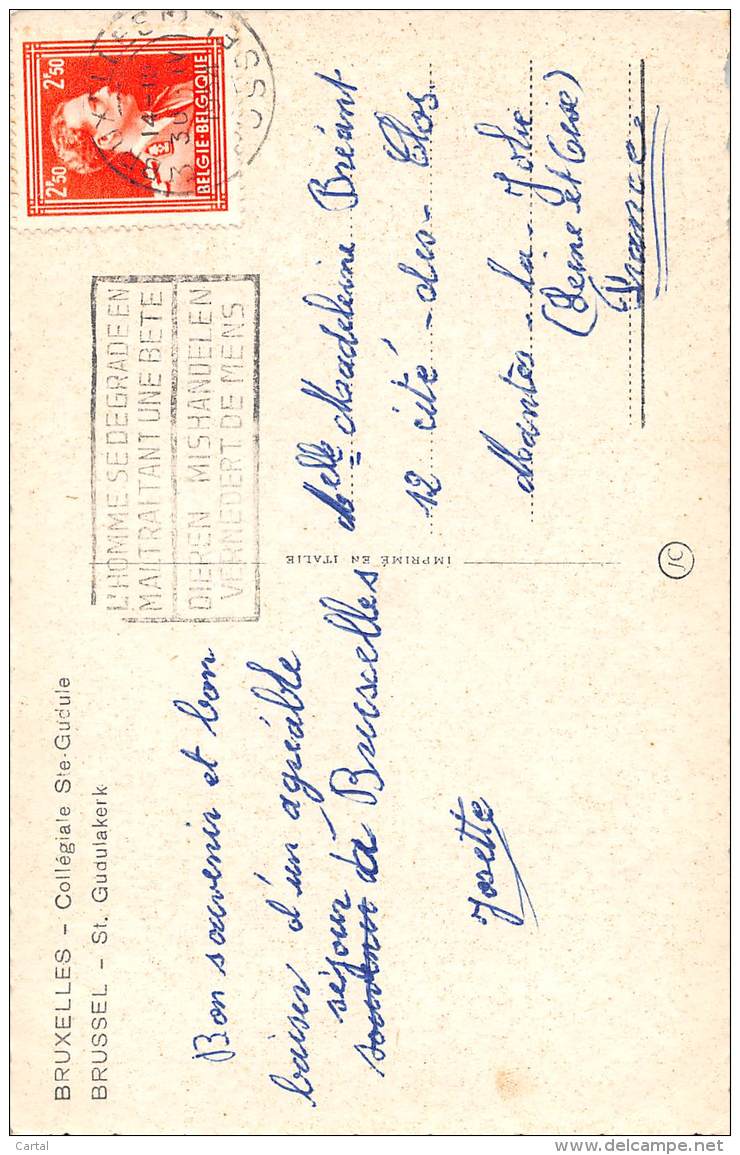 BRUXELLES - Collégiale Ste-Gudule
BRUSSEL - St. Gudulakerk
Bon souvenir et bon
baiser d'un agréable
séjour
souvenir à Bruxelles
Josette
IMPRIMÉ EN ITALIE
L'HOMME SE DEGRADE EN
MALTRAITANT UNE BETE
DIEREN MISHANDELEN
VERNEDERT DE MENS
2F50
2F50
BELGIE-BELGIQUE
14-10
30 IV
Melle Madeleine Bréant
12 cité-des-Clos
Mantes-La-Jolie
(Seine et Oise)
France
JC
Cartal
delcampe.net